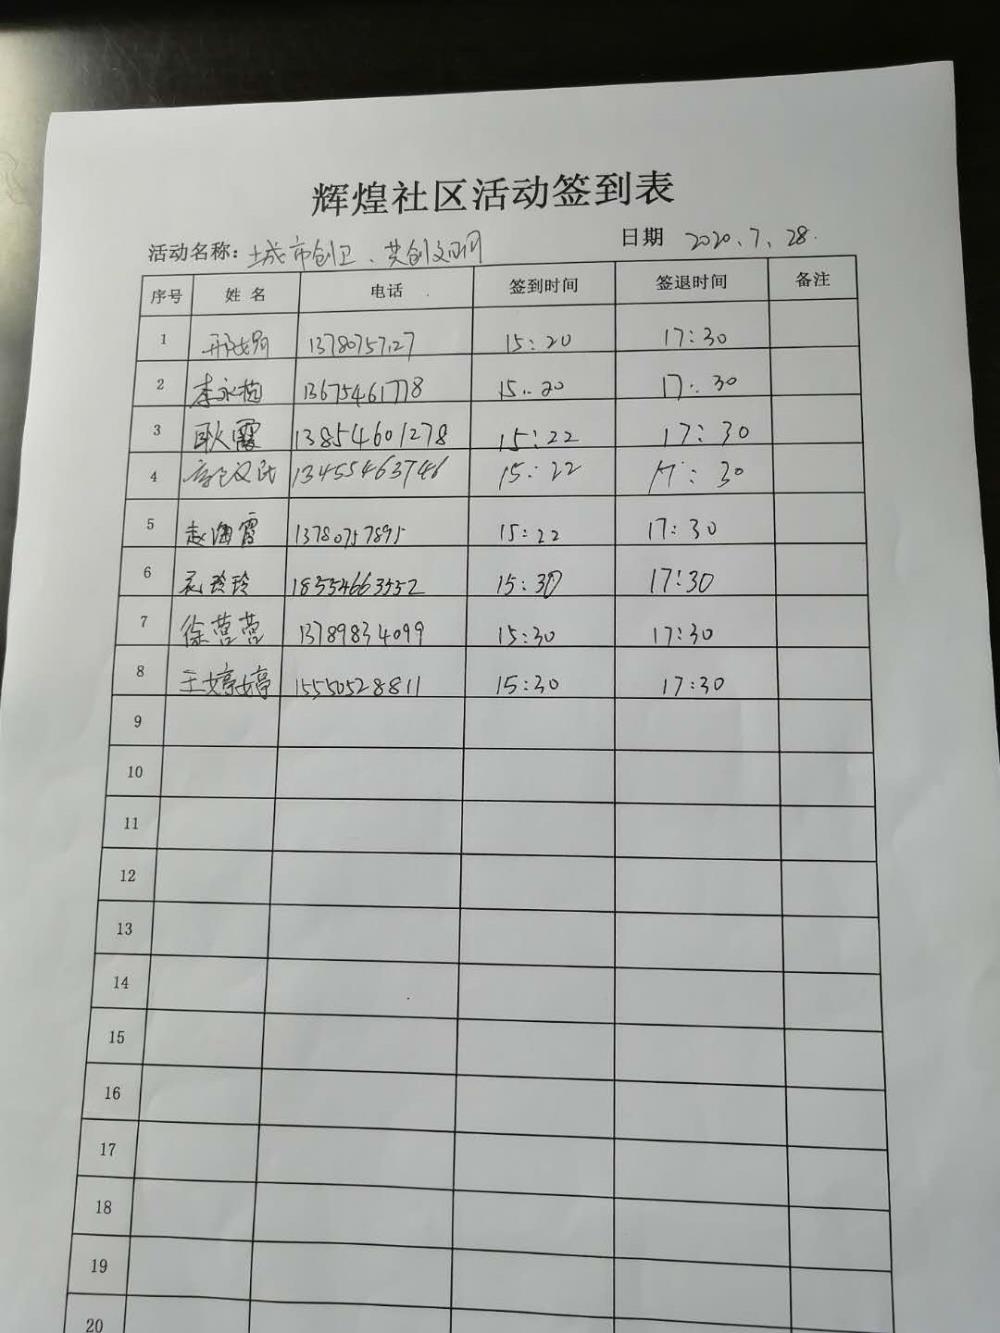 辉煌社区活动签到表
活动名称：城市创卫、共创文明 日期 2020.7.28.
序号 姓名 电话 签到时间 签退时间 备注
1 15:20 17:30
2 13675461778 15:20 17:30
3 耿霞 13854601278 15:22 17:30
4 13455463746 15:22 17:30
5 赵海霞 13780757895 15:22 17:30
6 玲玲 18554663552 15:30 17:30
7 徐营营 13789834099 15:30 17:30
8 王婷婷 15550528811 15:30 17:30
9
10
11
12
13
14
15
16
17
18
19
20